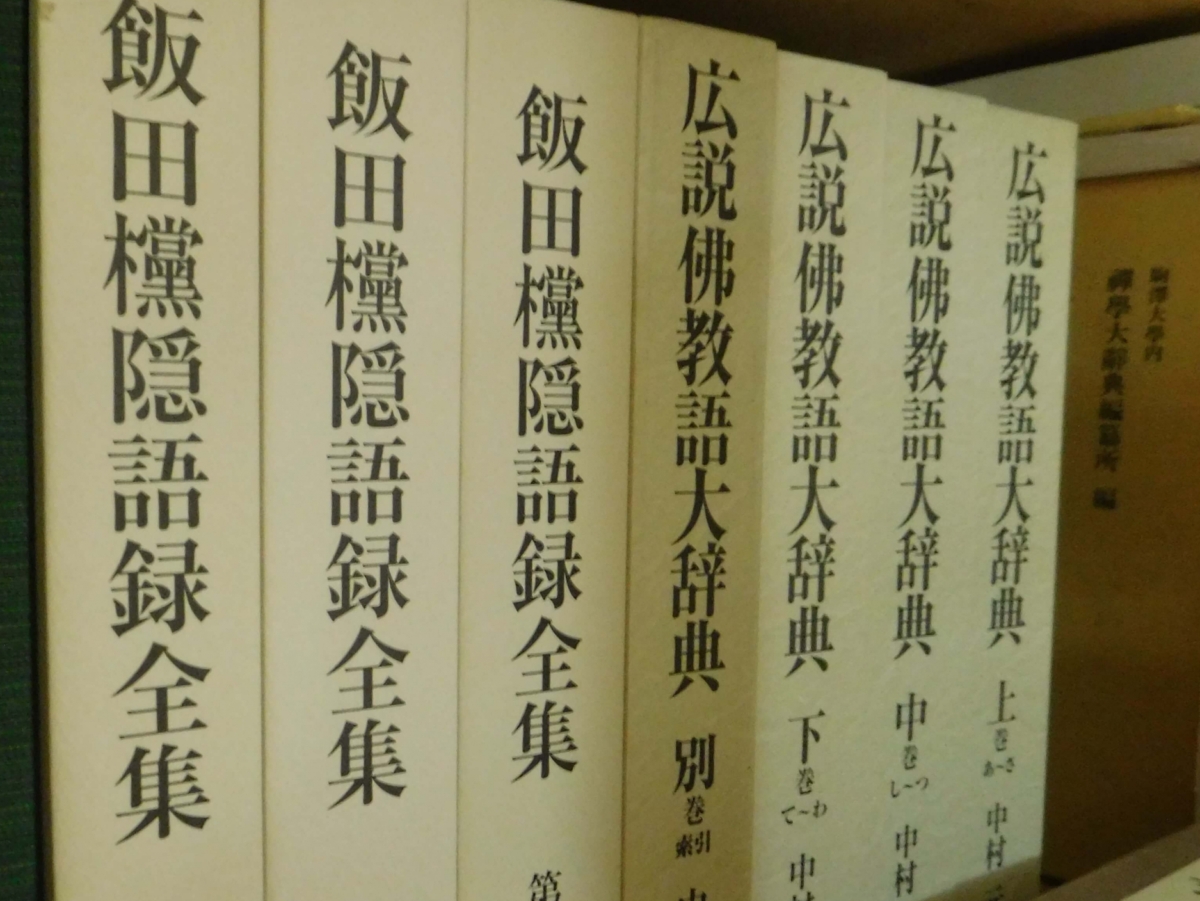 飯田欓隠語録全集
飯田欓隠語録全集
飯田欓隠語録全集 第
広説佛教語大辞典 別巻 索引 中
広説佛教語大辞典 下巻 て〜わ 中村
広説佛教語大辞典 中巻 し〜つ 中村
広説佛教語大辞典 上巻 あ〜さ 中村元
駒澤大學内
禪學大辭典編纂所 編